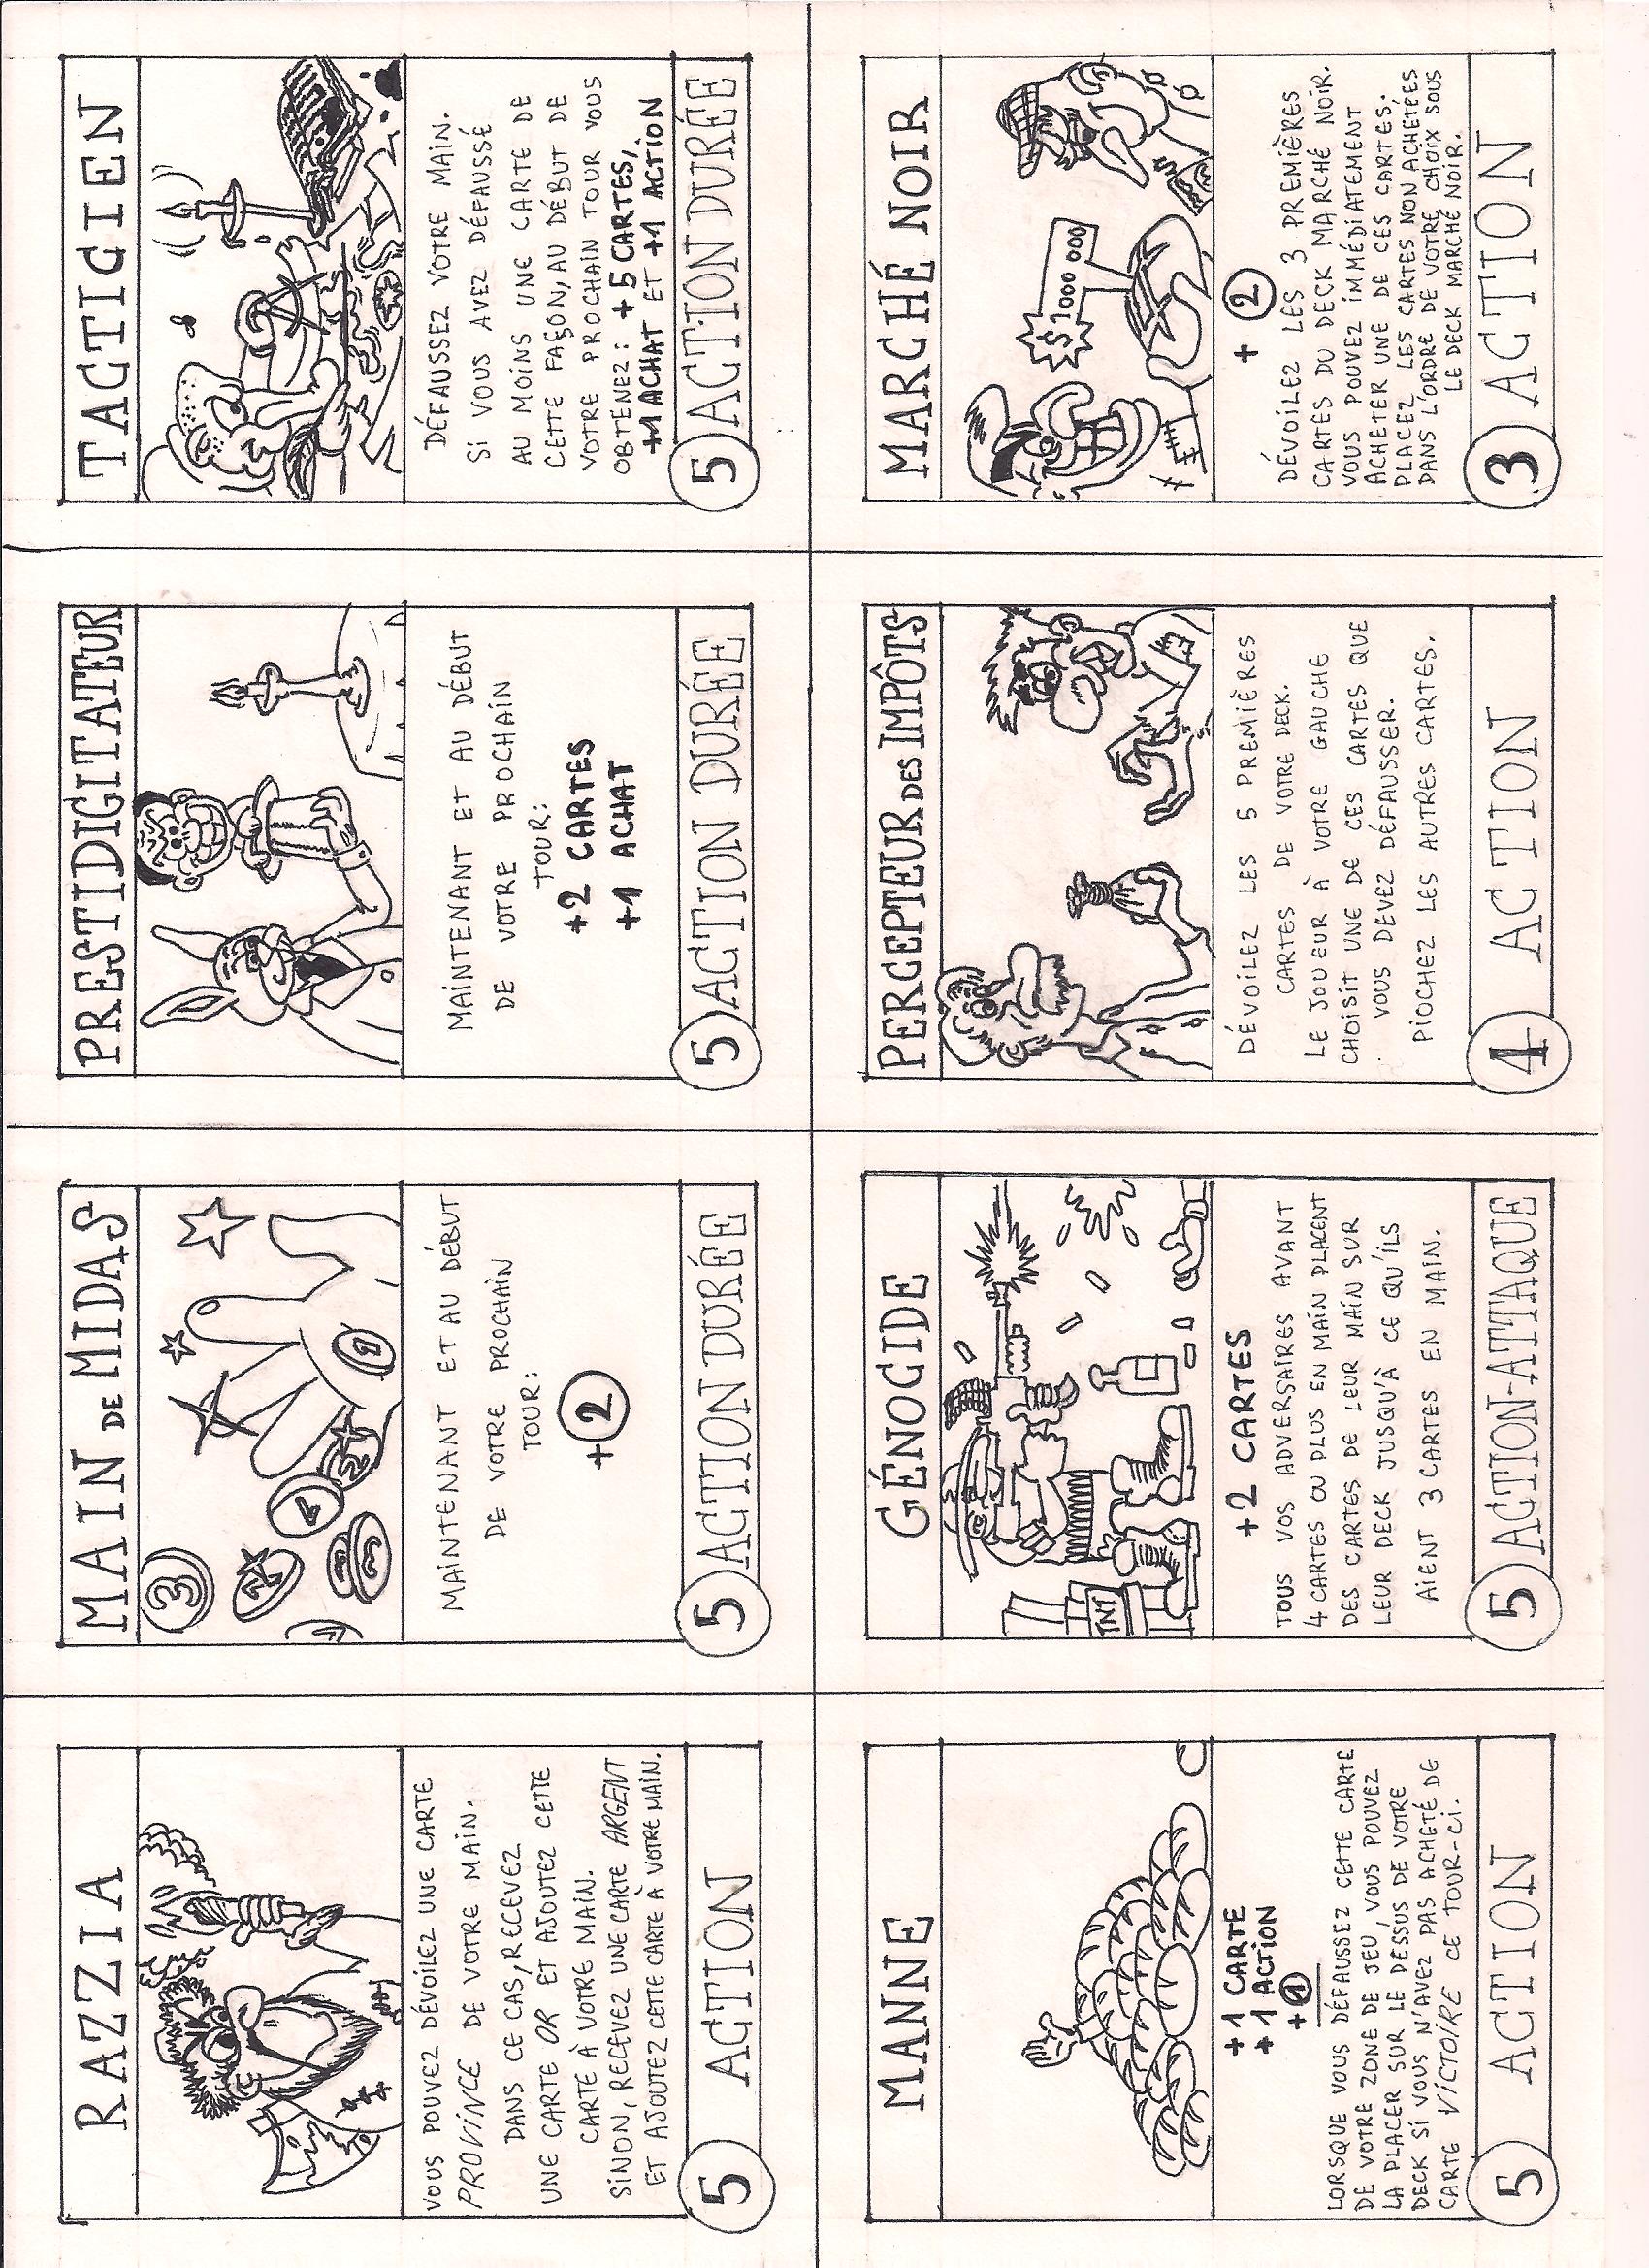 RAZZIA
VOUS POUVEZ DÉVOILEZ UNE CARTE
PROVINCE DE VOTRE MAIN.
DANS CE CAS, RECEVEZ
UNE CARTE OR ET AJOUTEZ CETTE
CARTE À VOTRE MAIN.
SINON, RECEVEZ UNE CARTE ARGENT
ET AJOUTEZ CETTE CARTE À VOTRE MAIN.
5 ACTION
MAIN DE MIDAS
3
1
3
1
2
2
MAINTENANT ET AU DÉBUT
DE VOTRE PROCHAIN
TOUR:
+2
5 ACTION DURÉE
PRESTIDIGITATEUR
MAINTENANT ET AU DÉBUT
DE VOTRE PROCHAIN
TOUR:
+2 CARTES
+1 ACHAT
5 ACTION DURÉE
TACTICIEN
DÉFAUSSEZ VOTRE MAIN.
SI VOUS AVEZ DÉFAUSSÉ
AU MOINS UNE CARTE DE
CETTE FAÇON, AU DÉBUT DE
VOTRE PROCHAIN TOUR VOUS
OBTENEZ: +5 CARTES,
+1 ACHAT ET +1 ACTION
5 ACTION DURÉE
MANNE
+1 CARTE
+1 ACTION
+1
LORSQUE VOUS DÉFAUSSEZ CETTE CARTE
DE VOTRE ZONE DE JEU, VOUS POUVEZ
LA PLACER SUR LE DESSUS DE VOTRE
DECK SI VOUS N'AVEZ PAS ACHETÉ DE
CARTE VICTOIRE CE TOUR-CI.
5 ACTION
GÉNOCIDE
TNT
+2 CARTES
TOUS VOS ADVERSAIRES AVANT
4 CARTES OU PLUS EN MAIN PLACENT
DES CARTES DE LEUR MAIN SUR
LEUR DECK JUSQU'À CE QU'ILS
AIENT 3 CARTES EN MAIN.
5 ACTION-ATTAQUE
PERCEPTEUR DES IMPÔTS
DÉVOILEZ LES 5 PREMIÈRES
CARTES DE VOTRE DECK.
LE JOUEUR À VOTRE GAUCHE
CHOISIT UNE DE CES CARTES QUE
VOUS DEVEZ DÉFAUSSER.
PIOCHEZ LES AUTRES CARTES.
4 ACTION
MARCHÉ NOIR
$1000 000
+2
DÉVOILEZ LES 3 PREMIÈRES
CARTES DU DECK MARCHÉ NOIR.
VOUS POUVEZ IMMÉDIATEMENT
ACHETER UNE DE CES CARTES.
PLACEZ LES CARTES NON ACHETÉES
DANS L'ORDRE DE VOTRE CHOIX SOUS
LE DECK MARCHÉ NOIR.
3 ACTION